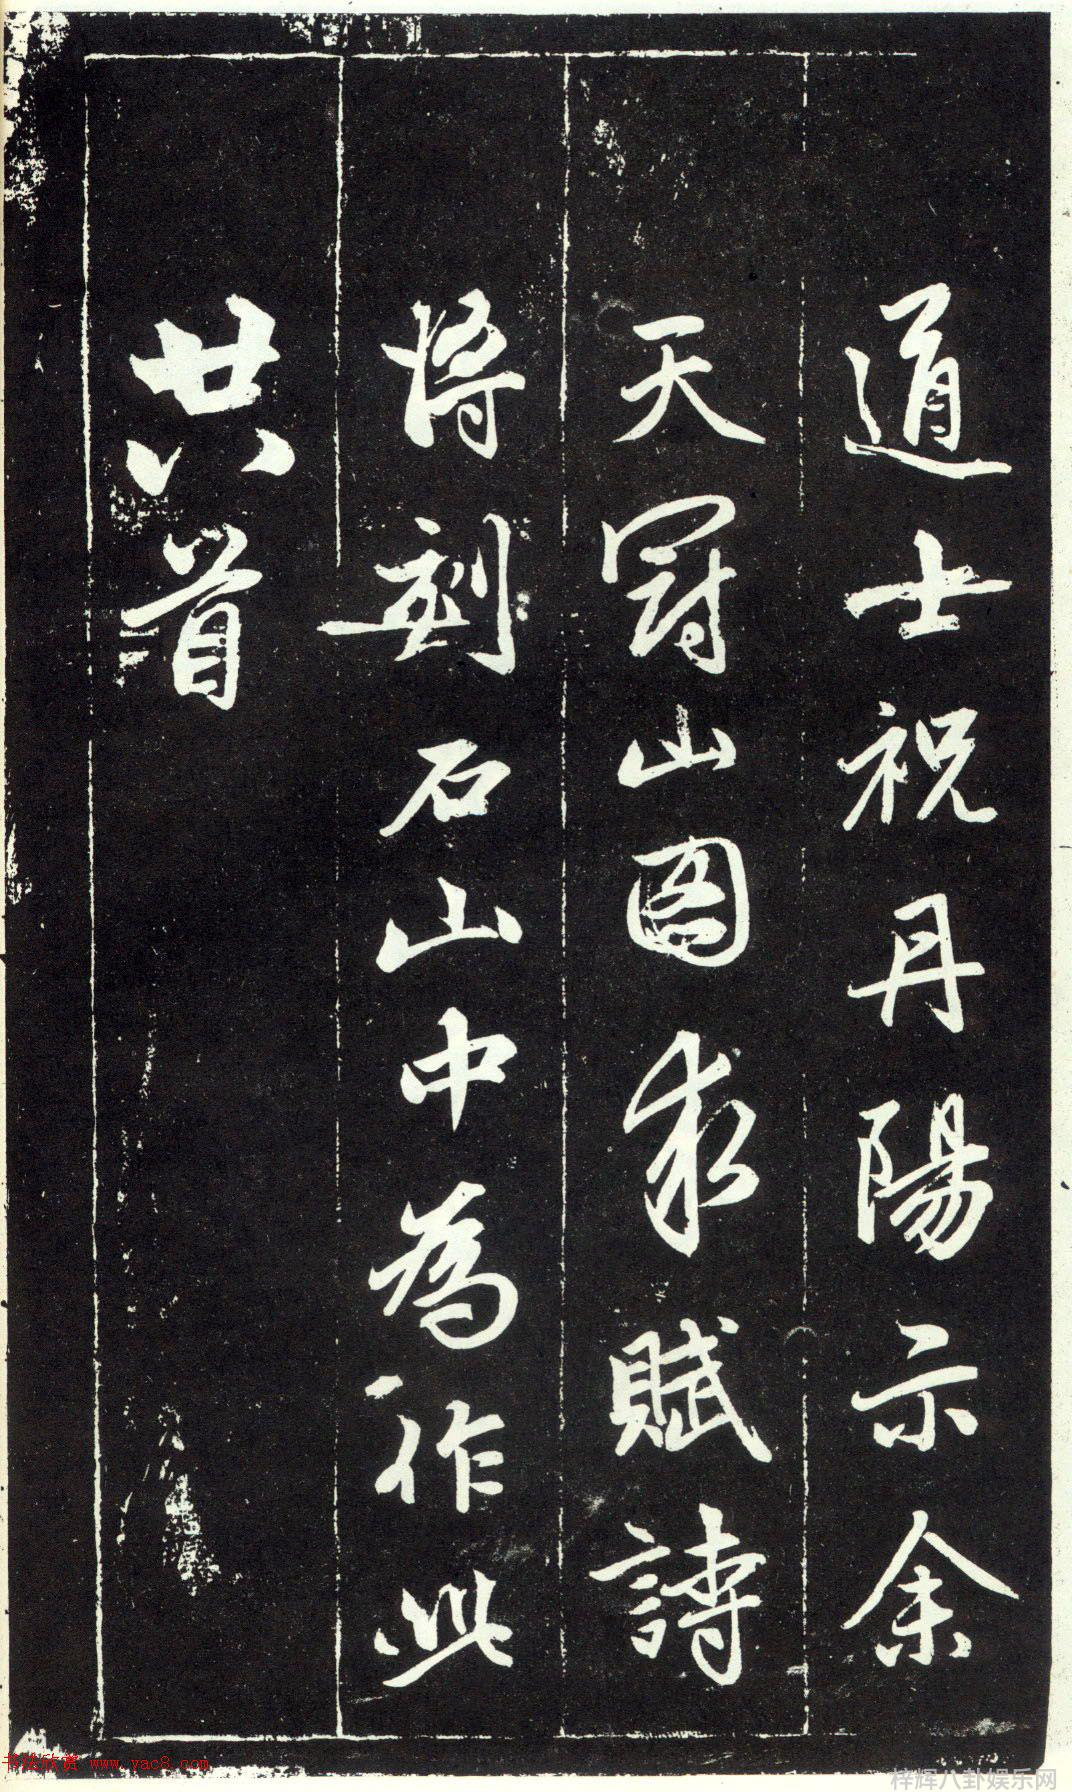 道士祝丹陽示余
天冠山圖求賦詩
將刻石山中為作此
廿八首
书法欣赏 www.yac8.com
梓辉八卦娱乐网